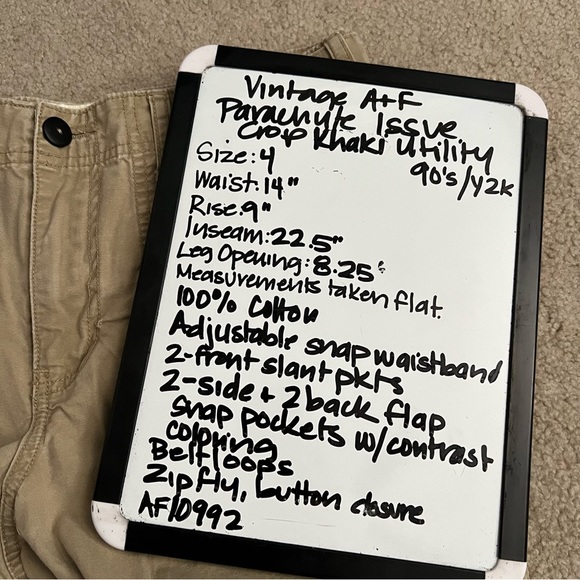 Vintage A+F
Parachute Issue
Crop Khaki Utility
90's/Y2K
Size: 4
Waist: 14"
Rise: 9"
Inseam: 22.5"
Leg Opening: 8.25"
Measurements taken flat.
100% Cotton
Adjustable snap waistband
2-front slant pkts
2-side + 2 back flap
snap pockets w/contrast
coloring
Belt loops
Zip fly, button closure
AF10992